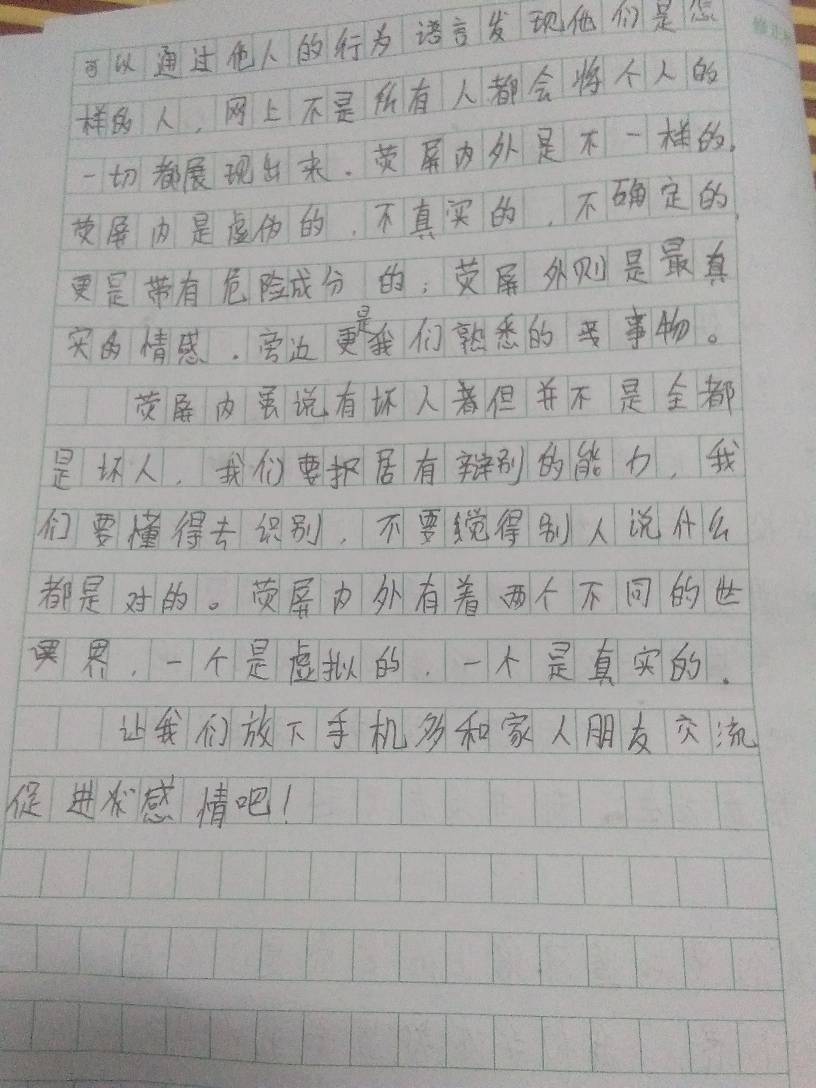 可以通过他人的行为语言发现他们是怎
样的人，网上不是所有人都会将个人的
一切都展现出来．荧屏内外是不一样的，
荧屏内是虚伪的，不真实的，不确定的，
更是带有危险成分的；荧屏外则是最真
实的情感．旁边更是我们熟悉的事物。
荧屏内虽说有坏人着但并不是全都
是坏人，我们要报居有辩别的能力，我
们要懂得去识别，不要觉得别人说什么
都是对的。荧屏内外有着两个不同的世
界，一个是虚拟的，一个是真实的．
让我们放下手机多和家人朋友交流
促进感情吧！